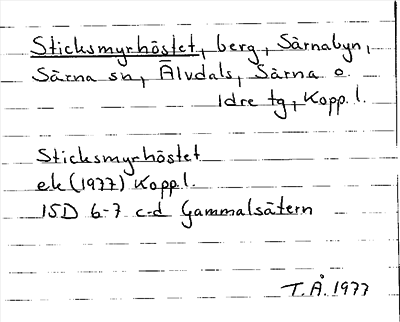 Sticksmyrhöstet, berg, Särnabyn,
Särna sn, Älvdals, Särna o.
Idre tg, Kopp. l.
Sticksmyrhöstet
ek (1977) Kopp. l.
15D 6-7 c-d Gammalsätern
T.Å. 1977